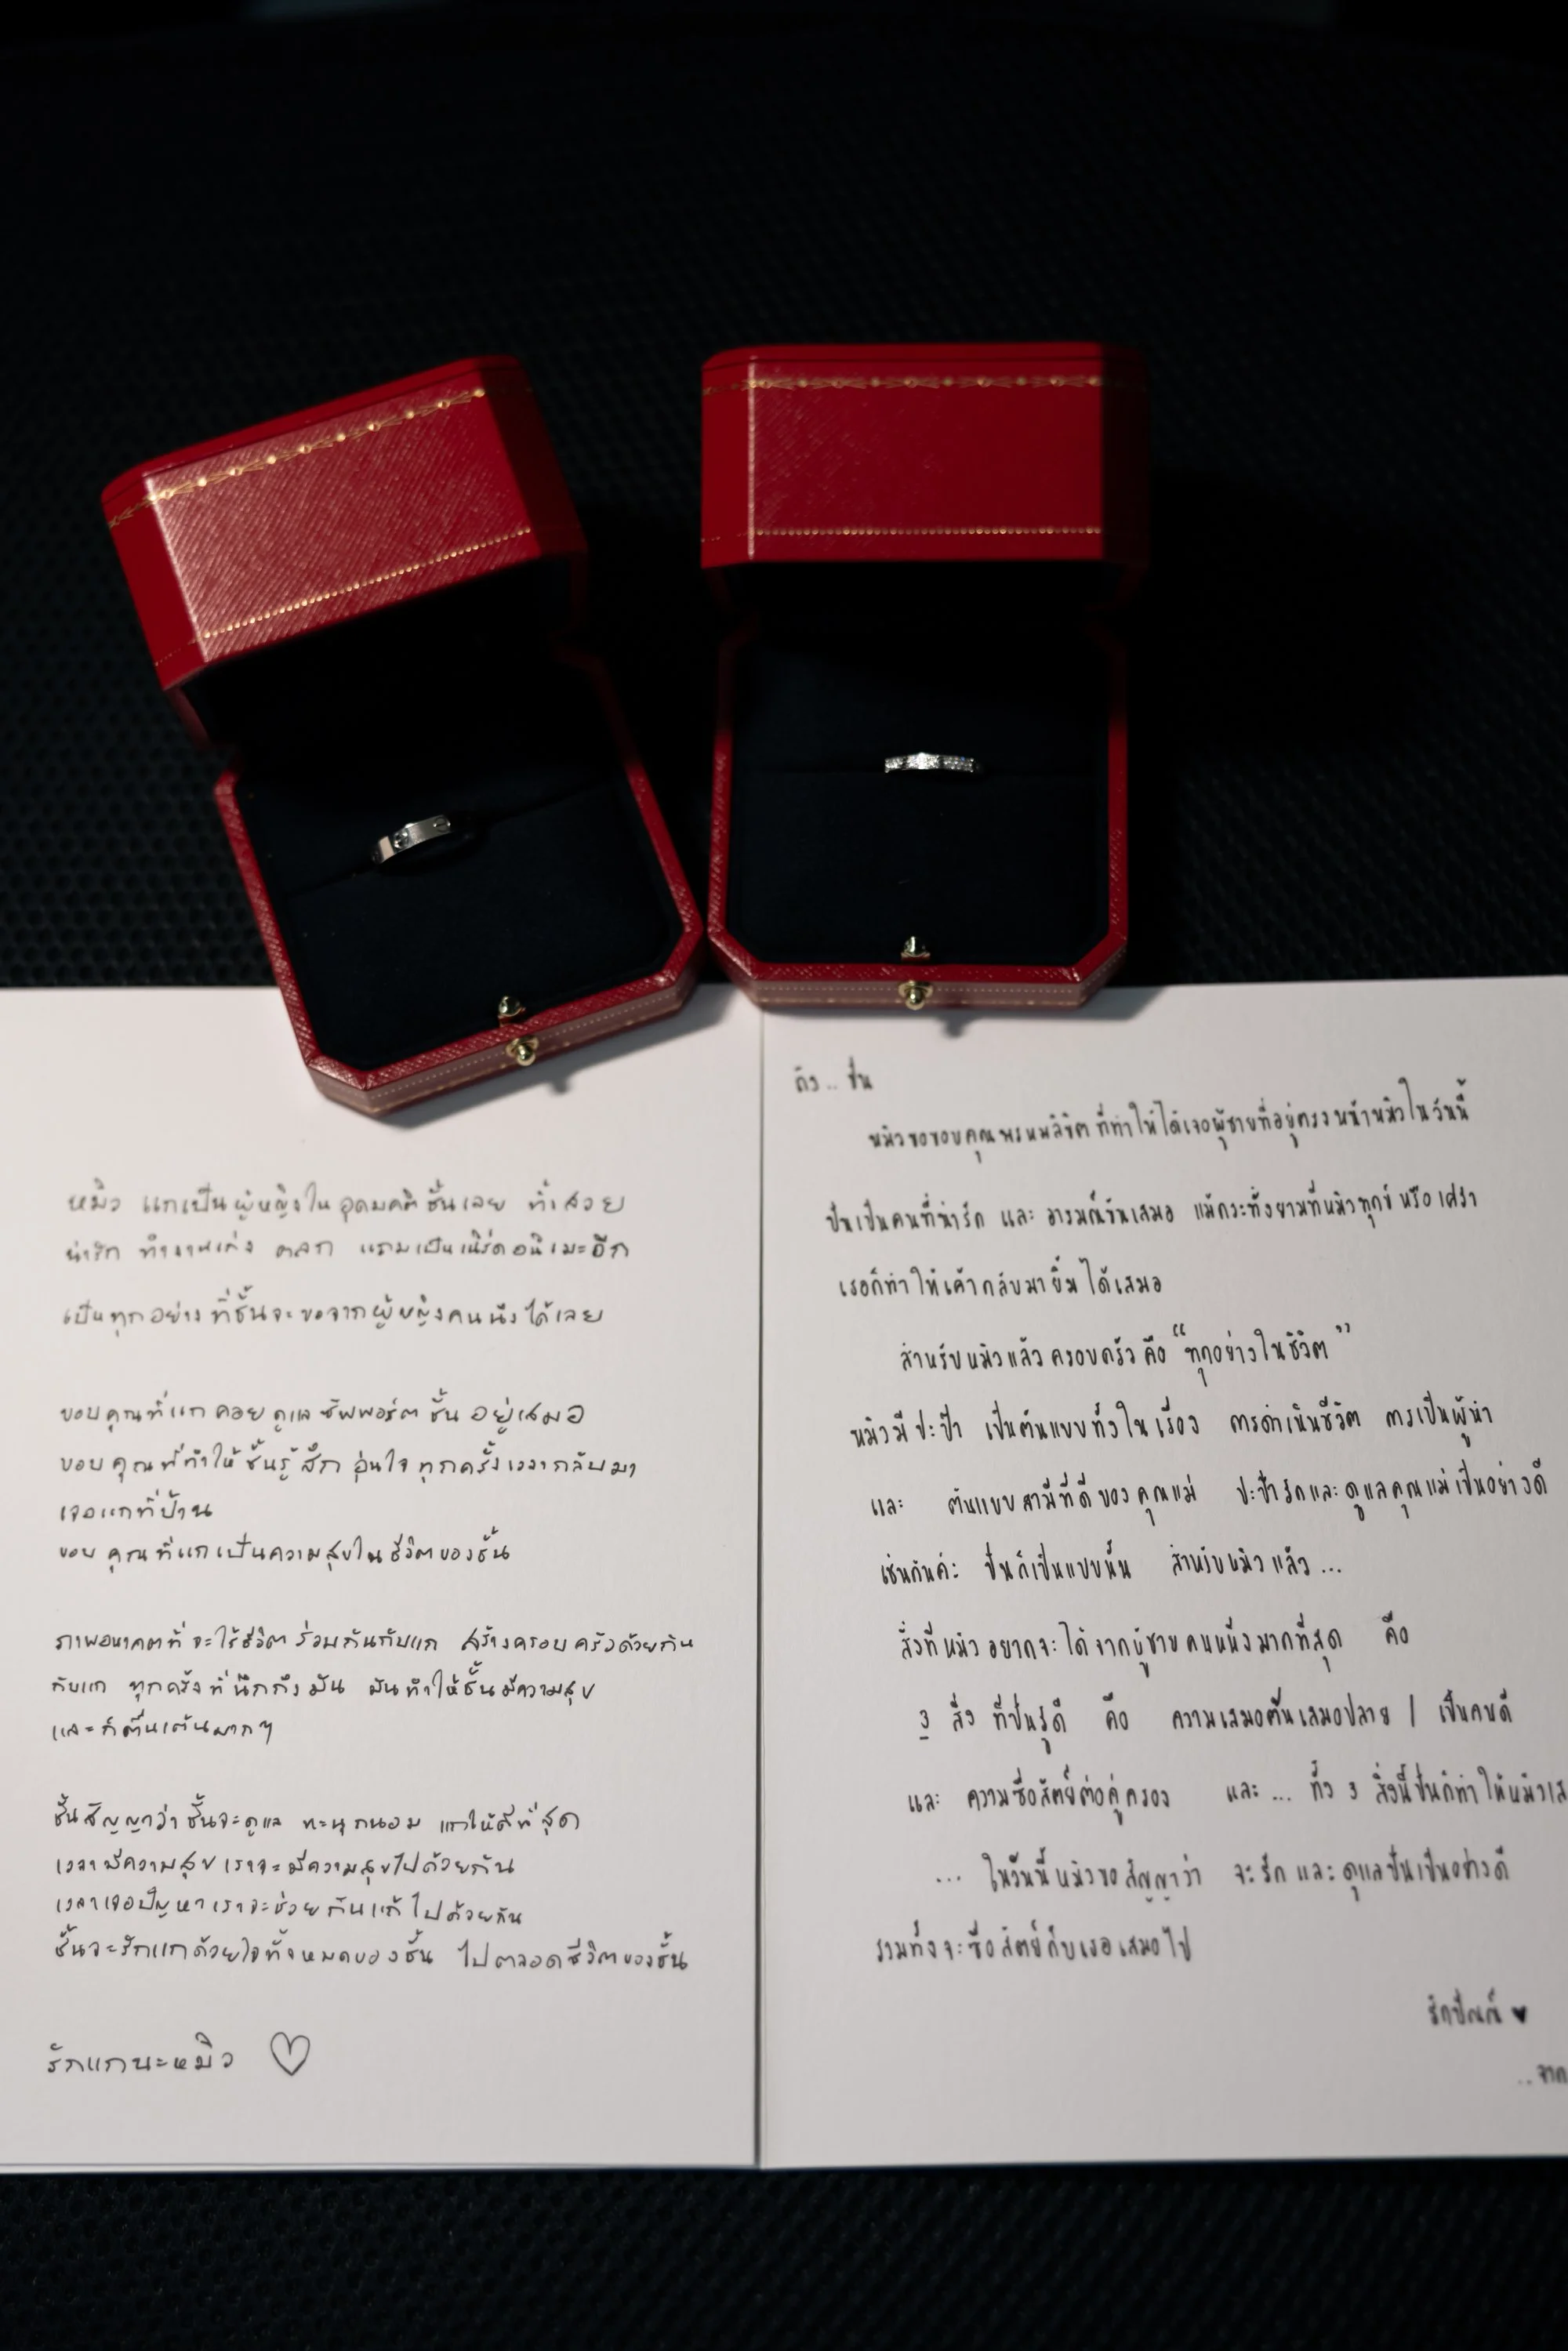 หมิว แกเป็นผู้หญิงในอุดมคติชั้นเลย ทั้งสวย
น่ารัก ทำงานเก่ง ตลก แถมเป็นเนิร์ดอนิเมะอีก
เป็นทุกอย่างที่ชั้นจะขอจากผู้หญิงคนนึงได้เลย
ขอบคุณที่แกคอยดูแลซัพพอร์ตชั้นอยู่เสมอ
ขอบคุณที่ทำให้ชั้นรู้สึกอุ่นใจทุกครั้งเวลากลับมา
เจอแกที่บ้าน
ขอบคุณที่แกเป็นความสุขในชีวิตของชั้น
ภาพอนาคตที่จะใช้ชีวิตร่วมกันกับแก สร้างครอบครัวด้วยกัน
กับแก ทุกครั้งที่นึกถึงมัน มันทำให้ชั้นมีความสุข
และก็ตื่นเต้นมากๆ
ชั้นสัญญาว่าชั้นจะดูแล ทะนุถนอม แกให้ดีที่สุด
เวลามีความสุขเราจะมีความสุขไปด้วยกัน
เวลาเจอปัญหาเราจะช่วยกันแก้ไปด้วยกัน
ชั้นจะรักแกด้วยใจทั้งหมดของชั้น ไปตลอดชีวิตของชั้น
รักแกนะหมิว ♡
ถึง.. ปั่น
หมิวขอขอบคุณพรหมลิขิตที่ทำให้ได้เจอผู้ชายที่อยู่ตรงหน้าหมิวในวันนี้
ปั่นเป็นคนที่น่ารัก และ อารมณ์ขันเสมอ แม้กระทั่งยามที่หมิวทุกข์ หรือเศร้า
เธอก็ทำให้เค้ากลับมายิ้มได้เสมอ
สำหรับหมิวแล้วครอบครัว คือ "ทุกอย่างในชีวิต"
หมิวมีปะป๊า เป็นต้นแบบทั้งในเรื่อง การดำเนินชีวิต การเป็นผู้นำ
และ ต้นแบบสามีที่ดีของคุณแม่ ปะป๊ารักและดูแลคุณแม่เป็นอย่างดี
เช่นกันค่ะ ปั่นก็เป็นแบบนั้น สำหรับหมิวแล้ว...
สิ่งที่หมิวอยากจะได้จากผู้ชายคนหนึ่งมากที่สุด คือ
3 สิ่ง ที่ปั่นรู้ดี คือ ความเสมอต้นเสมอปลาย / เป็นคนดี
และ ความซื่อสัตย์ต่อคู่ครอง และ... ทั้ง 3 สิ่งนี้ปั่นก็ทำให้หมิวเส
... ในวันนี้หมิวขอสัญญาว่า จะรักและดูแลปั่นเป็นอย่างดี
รวมทั้งจะซื่อสัตย์กับเธอเสมอไป
รักปัณณ์ ♥
..จาก